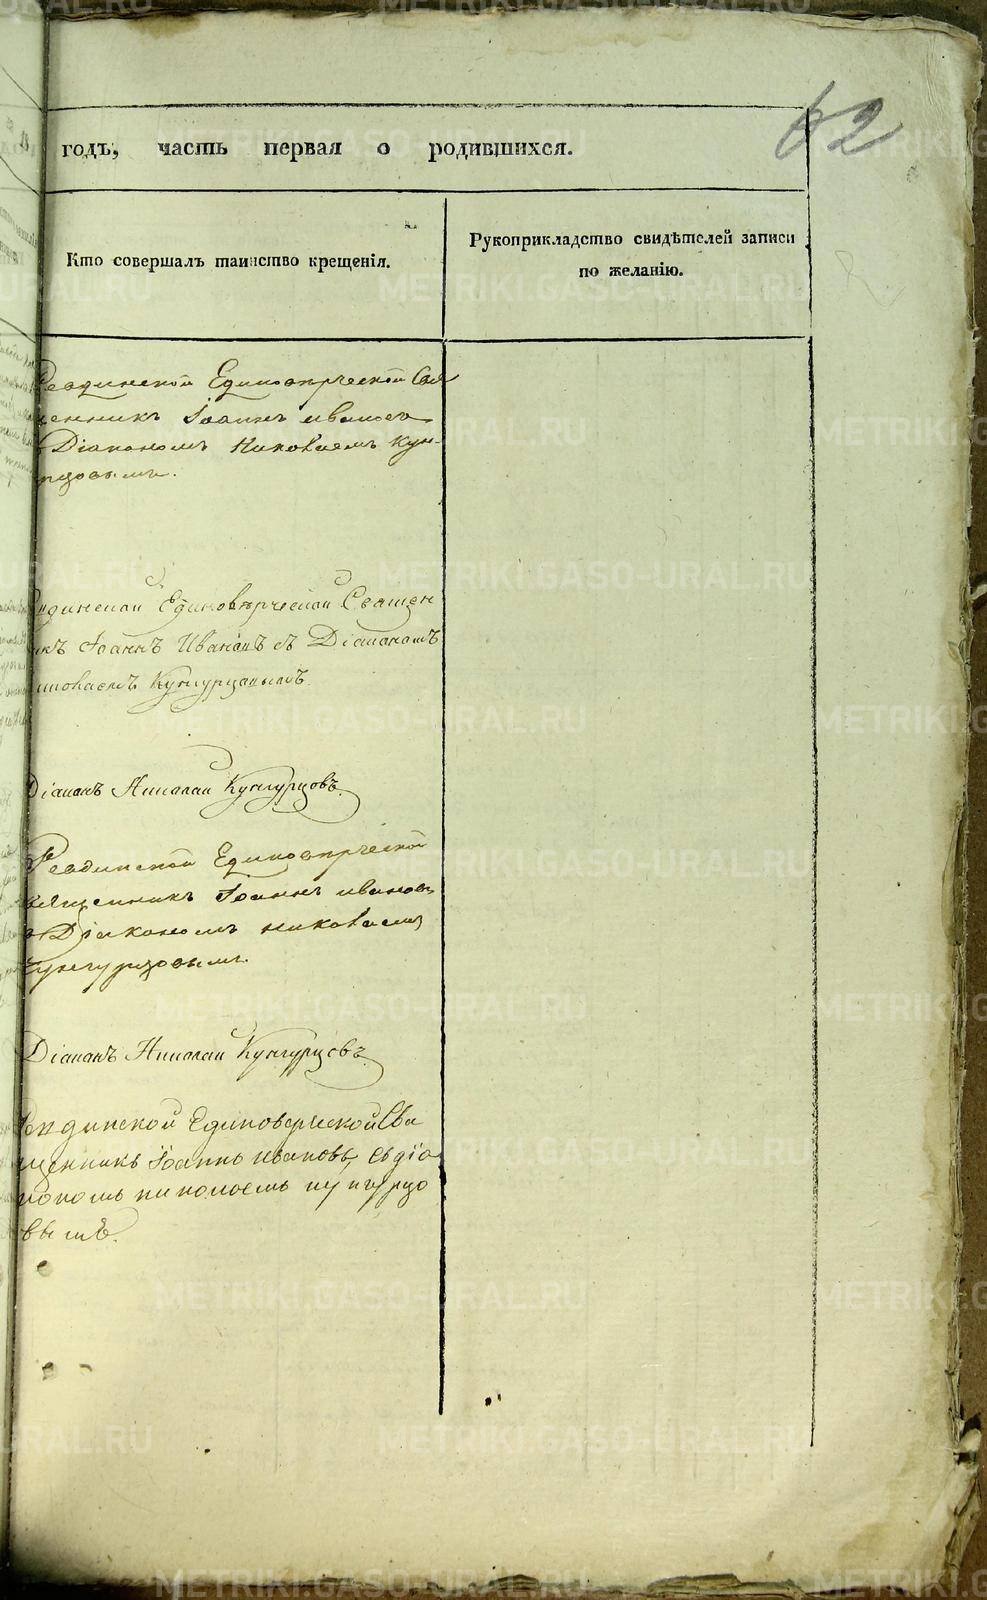 62
годъ, часть первая о родившихся.
Кто совершалъ таинство крещенія.
Рукоприкладство свидѣтелей записи
по желанію.
Ревдинской Единовѣрческой Свя
щенникъ Іоаннъ Ивановъ
Діакономъ Николаемъ Кун-
гурцовымъ.
Ревдинской Единовѣрческой Священ
никъ Іоаннъ Ивановъ съ Діакономъ
Николаемъ Кунгурцовымъ
Діаконъ Николай Кунгурцовъ.
Ревдинской Единовѣрческой
священникъ Іоаннъ Ивановъ
съ Діакономъ Николаемъ
Кунгурцовымъ.
Діаконъ Николай Кунгурцовъ
Ревдинской Единоверческой Свя
щенникъ Іоаннъ Ивановъ, съ діа
кономъ николаемъ кунгурцо
вымъ.
METRIKI.GASO-URAL.RU